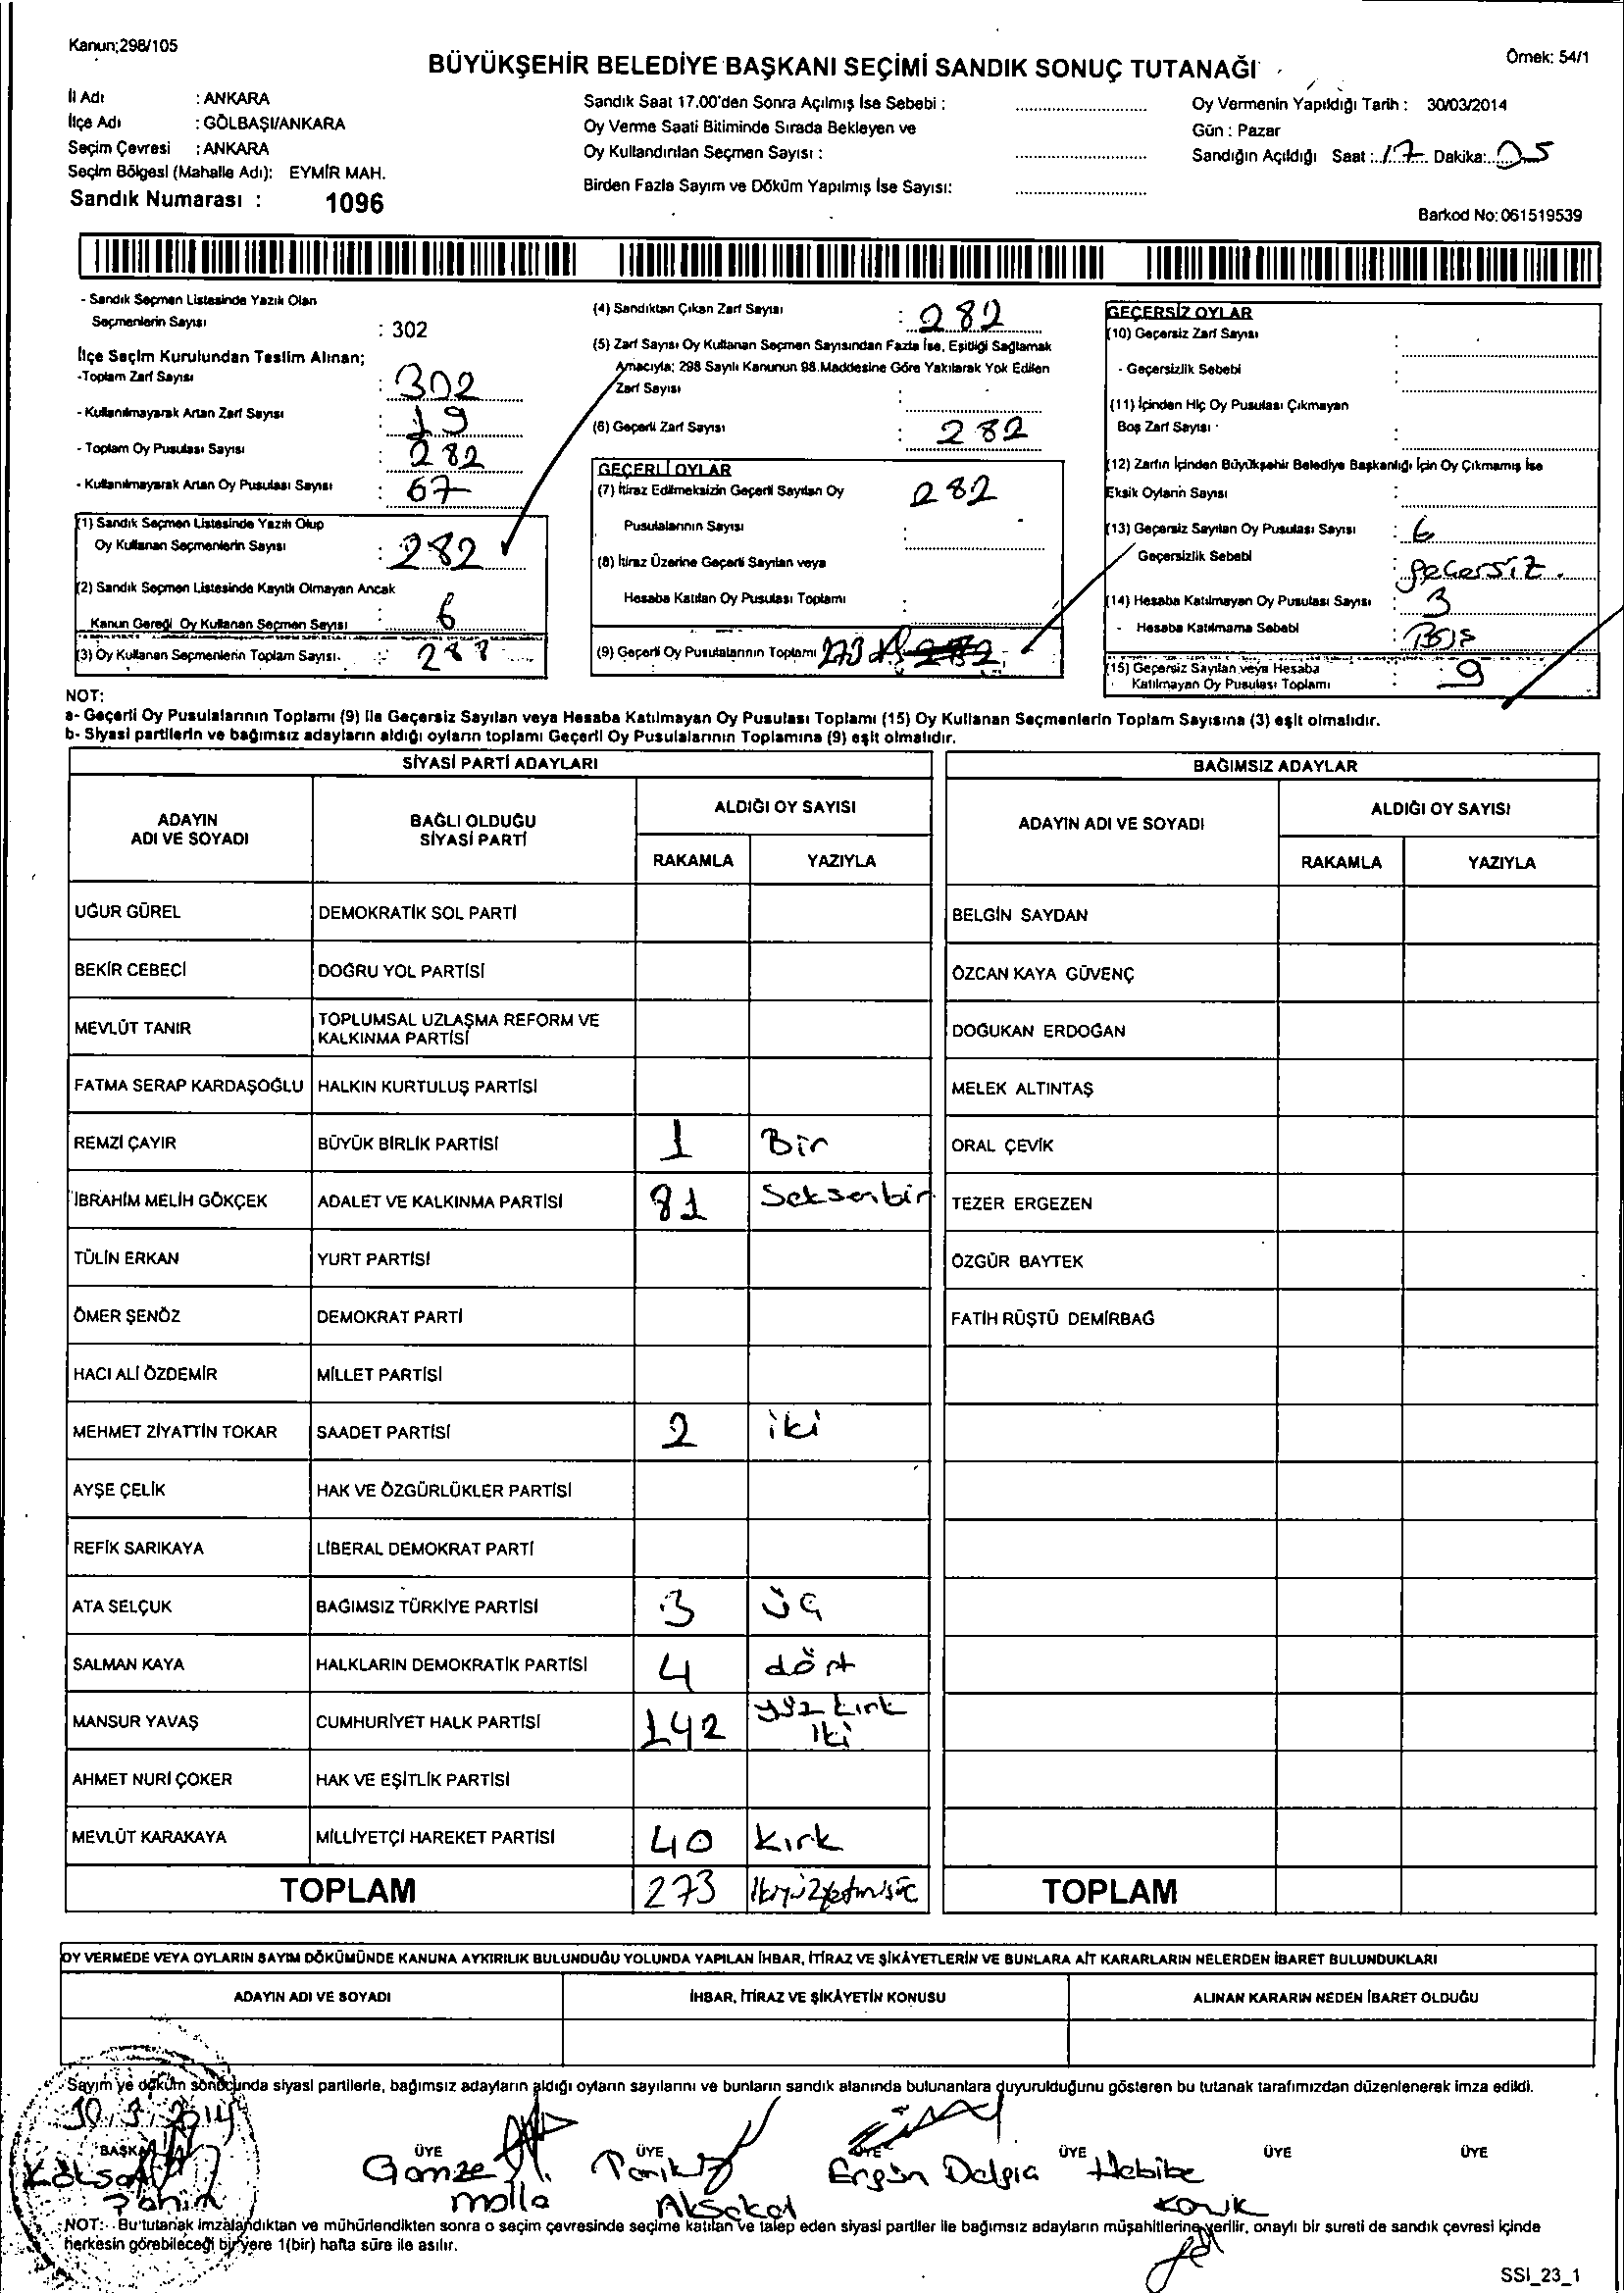 Kanun;298/105
Örnek: 54/1
BÜYÜKŞEHİR BELEDİYE BAŞKANI SEÇİMİ SANDIK SONUÇ TUTANAĞI
İl Adı : ANKARA
İlçe Adı : GÖLBAŞI/ANKARA
Seçim Çevresi : ANKARA
Seçim Bölgesi (Mahalle Adı): EYMİR MAH.
Sandık Numarası : 1096
Sandık Saat 17.00'den Sonra Açılmış İse Sebebi :
Oy Verme Saati Bitiminde Sırada Bekleyen ve
Oy Kullandırılan Seçmen Sayısı :
Birden Fazla Sayım ve Döküm Yapılmış İse Sayısı:
Oy Vermenin Yapıldığı Tarih : 30/03/2014
Gün : Pazar
Sandığın Açıldığı Saat : 17 Dakika: 05
Barkod No: 061519539
- Sandık Seçmen Listesinde Yazılı Olan
Seçmenlerin Sayısı : 302
İlçe Seçim Kurulundan Teslim Alınan;
-Toplam Zarf Sayısı : 302
- Kullanılmayarak Artan Zarf Sayısı : 19
- Toplam Oy Pusulası Sayısı : 282
- Kullanılmayarak Artan Oy Pusulası Sayısı : 67
(1) Sandık Seçmen Listesinde Yazılı Olup
Oy Kullanan Seçmenlerin Sayısı : 282
(2) Sandık Seçmen Listesinde Kayıtlı Olmayan Ancak
Kanun Gereği Oy Kullanan Seçmen Sayısı : 6
(3) Oy Kullanan Seçmenlerin Toplam Sayısı :
(4) Sandıktan Çıkan Zarf Sayısı : 282
(5) Zarf Sayısı Oy Kullanan Seçmen Sayısından Fazla İse, Eşitliği Sağlamak
Amacıyla; 298 Sayılı Kanunun 98.Maddesine Göre Yakılarak Yok Edilen
Zarf Sayısı :
(6) Geçerli Zarf Sayısı : 282
GEÇERLİ OYLAR
(7) İtiraz Edilmeksizin Geçerli Sayılan Oy 282
Pusulalarının Sayısı :
(8) İtiraz Üzerine Geçerli Sayılan veya
Hesaba Katılan Oy Pusulası Toplamı :
(9) Geçerli Oy Pusulalarının Toplamı 273
GEÇERSİZ OYLAR
(10) Geçersiz Zarf Sayısı :
- Geçersizlik Sebebi :
(11) İçinden Hiç Oy Pusulası Çıkmayan
Boş Zarf Sayısı :
(12) Zarfın İçinden Büyükşehir Belediye Başkanlığı İçin Oy Çıkmamış İse
Eksik Oyların Sayısı :
(13) Geçersiz Sayılan Oy Pusulası Sayısı : 6
Geçersizlik Sebebi : geçersiz.
(14) Hesaba Katılmayan Oy Pusulası Sayısı : 3
- Hesaba Katılmama Sebebi : Boş
(15) Geçersiz Sayılan veya Hesaba : 9
Katılmayan Oy Pusulası Toplamı
NOT:
a- Geçerli Oy Pusulalarının Toplamı (9) ile Geçersiz Sayılan veya Hesaba Katılmayan Oy Pusulası Toplamı (15) Oy Kullanan Seçmenlerin Toplam Sayısına (3) eşit olmalıdır.
b- Siyasi partilerin ve bağımsız adayların aldığı oyların toplamı Geçerli Oy Pusulalarının Toplamına (9) eşit olmalıdır.
SİYASİ PARTİ ADAYLARI
ADAYIN ADI VE SOYADI
BAĞLI OLDUĞU SİYASİ PARTİ
ALDIĞI OY SAYISI
RAKAMLA YAZIYLA
UĞUR GÜREL DEMOKRATİK SOL PARTİ
BEKİR CEBECİ DOĞRU YOL PARTİSİ
MEVLÜT TANIR TOPLUMSAL UZLAŞMA REFORM VE KALKINMA PARTİSİ
FATMA SERAP KARDAŞOĞLU HALKIN KURTULUŞ PARTİSİ
REMZİ ÇAYIR BÜYÜK BİRLİK PARTİSİ 1 Bir
İBRAHİM MELİH GÖKÇEK ADALET VE KALKINMA PARTİSİ 81 Seksenbir
TÜLİN ERKAN YURT PARTİSİ
ÖMER ŞENÖZ DEMOKRAT PARTİ
HACI ALİ ÖZDEMİR MİLLET PARTİSİ
MEHMET ZİYATTİN TOKAR SAADET PARTİSİ 2 iki
AYŞE ÇELİK HAK VE ÖZGÜRLÜKLER PARTİSİ
REFİK SARIKAYA LİBERAL DEMOKRAT PARTİ
ATA SELÇUK BAĞIMSIZ TÜRKİYE PARTİSİ 3 üç
SALMAN KAYA HALKLARIN DEMOKRATİK PARTİSİ 4 dört
MANSUR YAVAŞ CUMHURİYET HALK PARTİSİ 142 yüz kırk iki
AHMET NURİ ÇOKER HAK VE EŞİTLİK PARTİSİ
MEVLÜT KARAKAYA MİLLİYETÇİ HAREKET PARTİSİ 40 kırk
TOPLAM 273 ikiyüzyetmişüç
BAĞIMSIZ ADAYLAR
ADAYIN ADI VE SOYADI
ALDIĞI OY SAYISI
RAKAMLA YAZIYLA
BELGİN SAYDAN
ÖZCAN KAYA GÜVENÇ
DOĞUKAN ERDOĞAN
MELEK ALTINTAŞ
ORAL ÇEVİK
TEZER ERGEZEN
ÖZGÜR BAYTEK
FATİH RÜŞTÜ DEMİRBAĞ
TOPLAM
OY VERMEDE VEYA OYLARIN SAYIM DÖKÜMÜNDE KANUNA AYKIRILIK BULUNDUĞU YOLUNDA YAPILAN İHBAR, İTİRAZ VE ŞİKÂYETLERİN VE BUNLARA AİT KARARLARIN NELERDEN İBARET BULUNDUKLARI
ADAYIN ADI VE SOYADI
İHBAR, İTİRAZ VE ŞİKÂYETİN KONUSU
ALINAN KARARIN NEDEN İBARET OLDUĞU
Sayım ve döküm sonucunda siyasi partilerle, bağımsız adayların aldığı oyların sayılarını ve bunların sandık alanında bulunanlara duyurulduğunu gösteren bu tutanak tarafımızdan düzenlenerek imza edildi.
30/3/2014
BAŞKAN ÜYE ÜYE ÜYE ÜYE ÜYE ÜYE
Köksal Gamze Tarık Ergün Dalgıa Habibe
Şahin molla Aksakal
NOT: Bu tutanak imzalandıktan ve mühürlendikten sonra o seçim çevresinde seçime katılan ve talep eden siyasi partiler ile bağımsız adayların müşahitlerine verilir, onaylı bir sureti de sandık çevresi içinde
herkesin görebileceği bir yere 1(bir) hafta süre ile asılır.
SSI_23_1